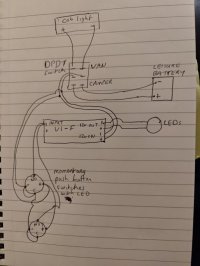 Cab light
DPDT
Switch
VAN
CAMPER
LEISURE
BATTERY
-
+
INPUT
VI-F
12V OUT
12V IN
LEDs
momentary
push button
switches
with LED